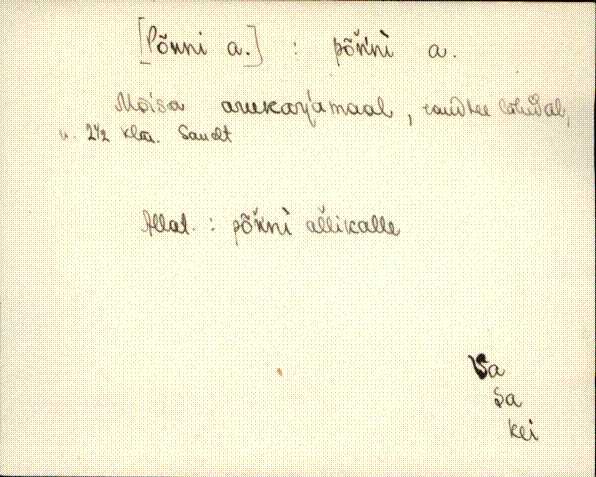 [Põnni a.] : põn̆nì a.
Mõisa arukarjamaal, raudtee lähedal,
u. 2½ klm. Saudt
Allat. : põn̆nì allikalle
Sa
Sa
kei